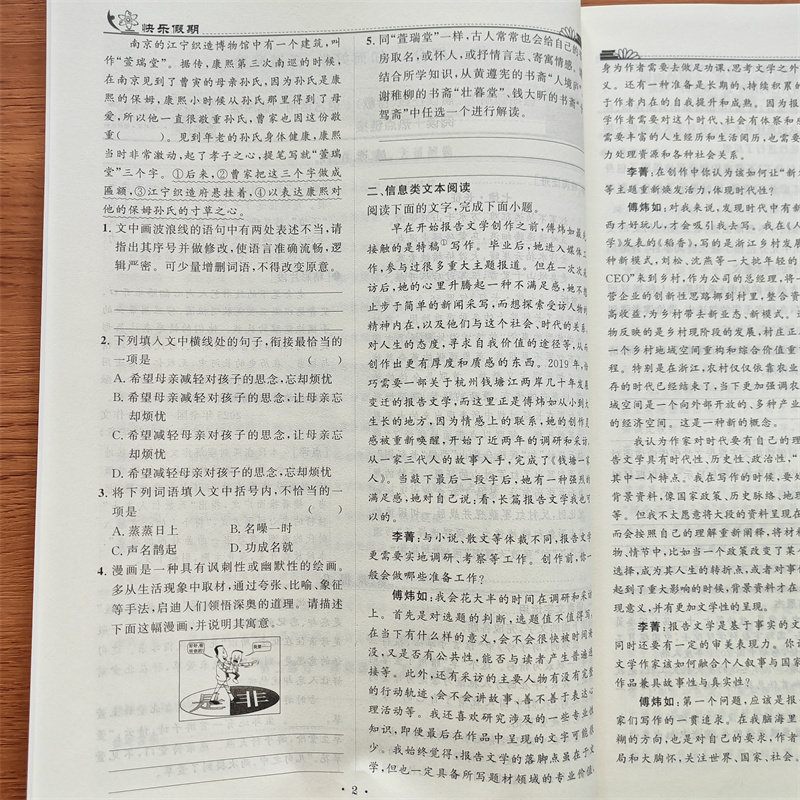 快乐假期
南京的江宁织造博物馆中有一个建筑，叫
作“萱瑞堂”。据传，康熙第三次南巡的时候，
在南京见到了曹寅的母亲孙氏，因为孙氏是康
熙的保姆，康熙小时候从孙氏那里得到了母
爱，所以他一直很敬重孙氏，曹家也因这份敬
重（　　）。见到年老的孙氏身体健康，康熙
当时非常激动，起了孝子之心，提笔写就“萱瑞
堂”三个字。①后来，②曹家把这三个字做成
匾额，③江宁织造府悬挂着，④以表达康熙对
他的保姆孙氏的寸草之心。
1. 文中画波浪线的语句中有两处表述不当，请
指出其序号并做修改，使语言准确流畅，逻
辑严密。可少量增删词语，不得改变原意。
2. 下列填入文中横线处的句子，衔接最恰当的
一项是　（　　）
A. 希望母亲减轻对孩子的思念，忘却烦忧
B. 希望减轻母亲对孩子的思念，让母亲忘
却烦忧
C. 希望减轻母亲对孩子的思念，让母亲忘
却烦忧
D. 希望减轻母亲对孩子的思念，忘却烦忧
3. 将下列词语填入文中括号内，不恰当的一
项是　（　　）
A. 蒸蒸日上　B. 名噪一时
C. 声名鹊起　D. 功成名就
4. 漫画是一种具有讽刺性或幽默性的绘画。
多从生活现象中取材，通过夸张、比喻、象征
等手法，启迪人们领悟深奥的道理。请描述
下面这幅漫画，并说明其寓意。
非
5. 同“萱瑞堂”一样，古人常常也会给自己的
房取名，或怀人，或抒情言志、寄寓情感。请
结合所学知识，从黄遵宪的书斋“人境
谢稚柳的书斋“壮暮堂”、钱大昕的书斋“
驾斋”中任选一个进行解读。
二、信息类文本阅读
阅读下面的文字，完成下面小题。
早在开始报告文学创作之前，傅炜如最
接触的是特稿①写作。毕业后，她进入媒体工
作，参与过很多重大主题报道。但在一次次
访后，她的心里升腾起一种不满足感，她不想
止步于简单的新闻采写，而想探索受访人物的
精神内在，以及他们与这个社会、时代的关系，
对人生的态度，寻求自我价值的途径等，从
创作出更有厚度和质感的东西。2019年，
巧需要一部关于杭州钱塘江两岸几十年发展
变迁的报告文学，而这里正是傅炜如从小
生长的地方，因为情感上的联系，她的创作
感被重新唤醒，开始了近两年的调研和采访，
从一家三代人的故事入手，完成了《钱塘一家
人》。当敲下最后一段字后，她有一种强烈的
满足感，她对自己说，看，长篇报告文学我也
以的。
李菁：与小说、散文等体裁不同，报告文学
更需要实地调研、考察等工作。创作前，你一
般会做哪些准备工作？
傅炜如：我会花大半的时间在调研和采访
上。首先是对选题的判断，选题值不值得写，
在当下有什么样的意义，会不会很快被时间淹
没，又是否有公共性，能否与读者产生普遍连
接等。此外，还有采访的主要人物有没有完整
的行动轨迹，会不会讲故事、善不善于表达心
理活动等。我还喜欢研究涉及的一些专业性
知识，即便最后在作品中呈现的文字可能很
少。我始终觉得，报告文学的落脚点虽在于文
学，但也一定具备所写题材领域的专业价值，
· 2 ·
身为作者需要去做足功课，思考文学之外
义。还有一种准备是长期的、持续积累的
于作者内在的自我提升和成熟。因为报
学作者需要对这个时代、社会有体察和感
需要丰富的人生经历和生活阅历，也需要
力处理资源和各种社会关系。
李菁：在创作中你认为该如何让“新
等主题重新焕发活力，体现时代性？
傅炜如：对我来说，发现时代中有新
西才好玩儿，才会吸引我去写。我在《人
学》发表的《稻香》，写的是浙江乡村发展
种新模式，刘松、沈燕等一大批年轻的
CEO”来到乡村，作为公司的总经理，将一
营企业的创新性思路挪到村里，整合资
高收益，为乡村带去新业态、新模式。这
物反映的是乡村现阶段的发展，村庄正
一个乡村地域空间重构和综合价值重
程。特别是在浙江，农村仅仅依靠农业
存的时代已经结束了，当下更加强调农
域空间是一个向外部开放的、多种产业
的经济空间。这是一种新的概念。
我认为作家对时代要有自己的理
告文学具有时代性、历史性、政治性，“
其中一个特点。我在写作的时候，要处
背景资料，像国家政策、历史脉络、地
等。但我不太愿意将大段的资料呈现在
而会按照自己的理解重新阐释，将材
物、情节中，比如当一个政策改变了某个
选择，成为其人生的转折点，或者对事件
起到了重大影响的时候，背景资料才在
现意义，并有更加文学性的呈现。
李菁：报告文学是基于事实的文
同时还要有一定的审美表现力。你认
文学作家该如何融合个人叙事与国家
作品兼具故事性与真实性？
傅炜如：第一个问题，应该是报
家们写作的一贯追求。在我脑海里
糊的方向，也是对自己的要求，作者
局和大胸怀，关注世界、国家、社会。